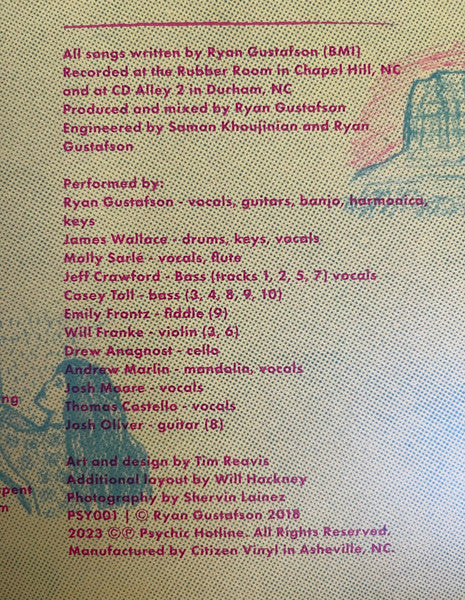 All songs written by Ryan Gustafson (BMI)
Recorded at the Rubber Room in Chapel Hill, NC
and at CD Alley 2 in Durham, NC
Produced and mixed by Ryan Gustafson
Engineered by Saman Khoujinian and Ryan
Gustafson
Performed by:
Ryan Gustafson - vocals, guitars, banjo, harmonica,
keys
James Wallace - drums, keys, vocals
Molly Sarlé - vocals, flute
Jeff Crawford - Bass (tracks 1, 2, 5, 7) vocals
Casey Toll - bass (3, 4, 8, 9, 10)
Emily Frantz - fiddle (9)
Will Franke - violin (3, 6)
Drew Anagnost - cello
Andrew Marlin - mandolin, vocals
Josh Moore - vocals
Thomas Costello - vocals
Josh Oliver - guitar (8)
Art and design by Tim Reavis
Additional layout by Will Hackney
Photography by Shervin Lainez
PSY001 | © Ryan Gustafson 2018
2023 ©℗ Psychic Hotline. All Rights Reserved.
Manufactured by Citizen Vinyl in Asheville, NC.